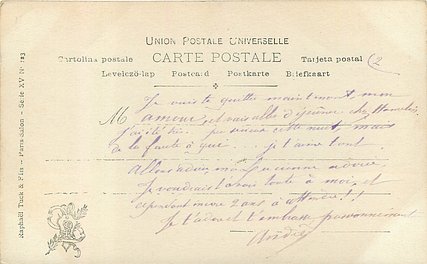 UNION POSTALE UNIVERSELLE
CARTE POSTALE
Cartolina postale Tarjeta postal (2
Levelező-lap Postcard Postkarte Briefkaart
Je vais te quitter maintenant, mon
M amour, et vais aller déjeuner chez
J'ai été pu venue cette nuit, mais
à la faute à que . . . je t'aime tant.
Allons adieu mon adorée
Je voudrais t'avoir toute à moi, et
cependant encore 2 ans à attendre!!
Je t'adore et t'embrasse passionnément
André
Raphaël Tuck & Fils - Paris salon - Serie XV No 123